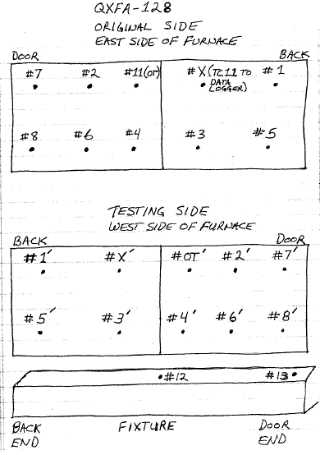 QXFA-128
ORIGINAL SIDE
EAST SIDE OF FURNACE
DOOR BACK
#7 #2 #11(OT) #X(TC11 TO DATA LOGGER) #1
#8 #6 #4 #3 #5
TESTING SIDE
WEST SIDE OF FURNACE
BACK DOOR
#1' #X' #OT' #2' #7'
#5' #3' #4' #6' #8'
#12 #13
BACK END FIXTURE DOOR END